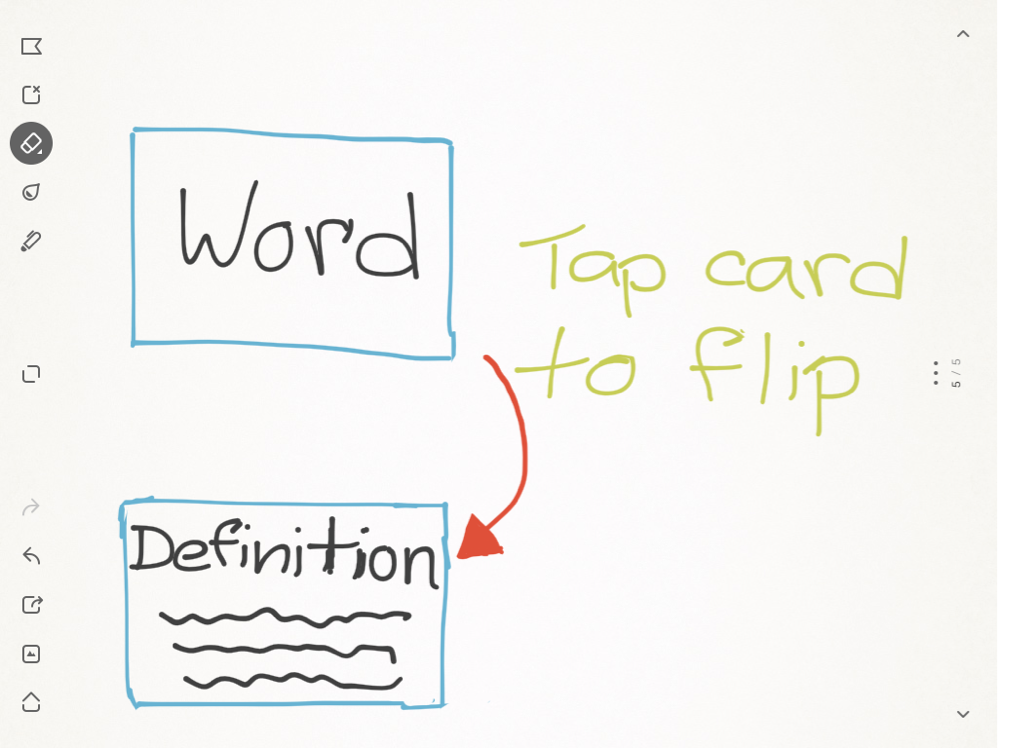 Word
Tap card
to flip
5 / 5
Definition